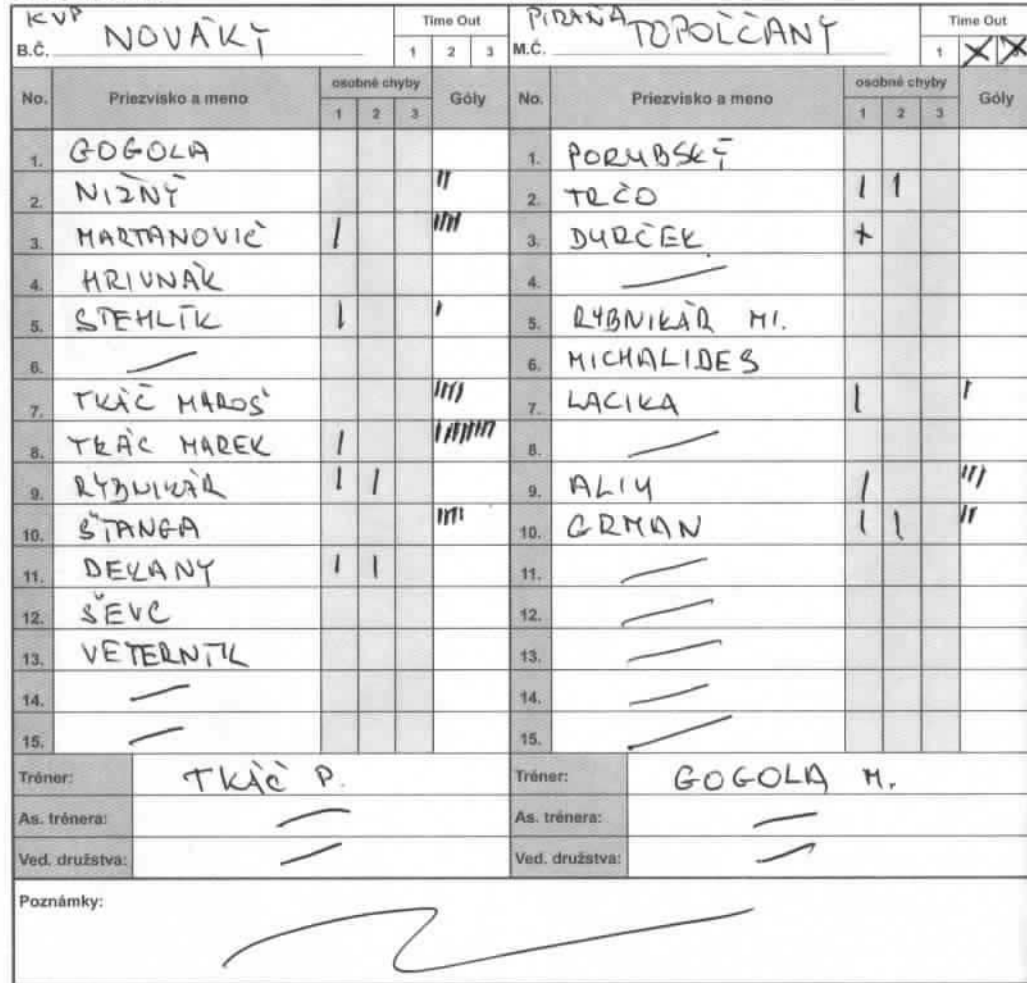 KVP NOVÁKY Time Out
B.Č. 1 2 3
No. Priezvisko a meno osobné chyby Góly
1 2 3
1. GOGOLA
2. NIŽNÝ II
3. MARTANOVIČ I IIII
4. HRIVNÁK
5. STEHLÍK I I
6. —
7. TKÁČ MAROŠ IIII
8. TKÁČ MAREK I
9. RYBNIKÁR I I
10. ŠTANGA IIII
11. DEKANY I I
12. ŠEVC
13. VETERNÍK
14. —
15. —
Tréner: TKÁČ P.
As. trénera: —
Ved. družstva: —
PIRAŇA TOPOĽČANY Time Out
M.Č. 1 X X
No. Priezvisko a meno osobné chyby Góly
1 2 3
1. PORUBSKÝ
2. TRČO I I
3. DURČEK +
4. —
5. RYBNIKÁR MI.
6. MICHALIDES
7. LACIKA I I
8. —
9. ALIU I III
10. GRMAN I I II
11. —
12. —
13. —
14. —
15. —
Tréner: GOGOLA M.
As. trénera: —
Ved. družstva: —
Poznámky: